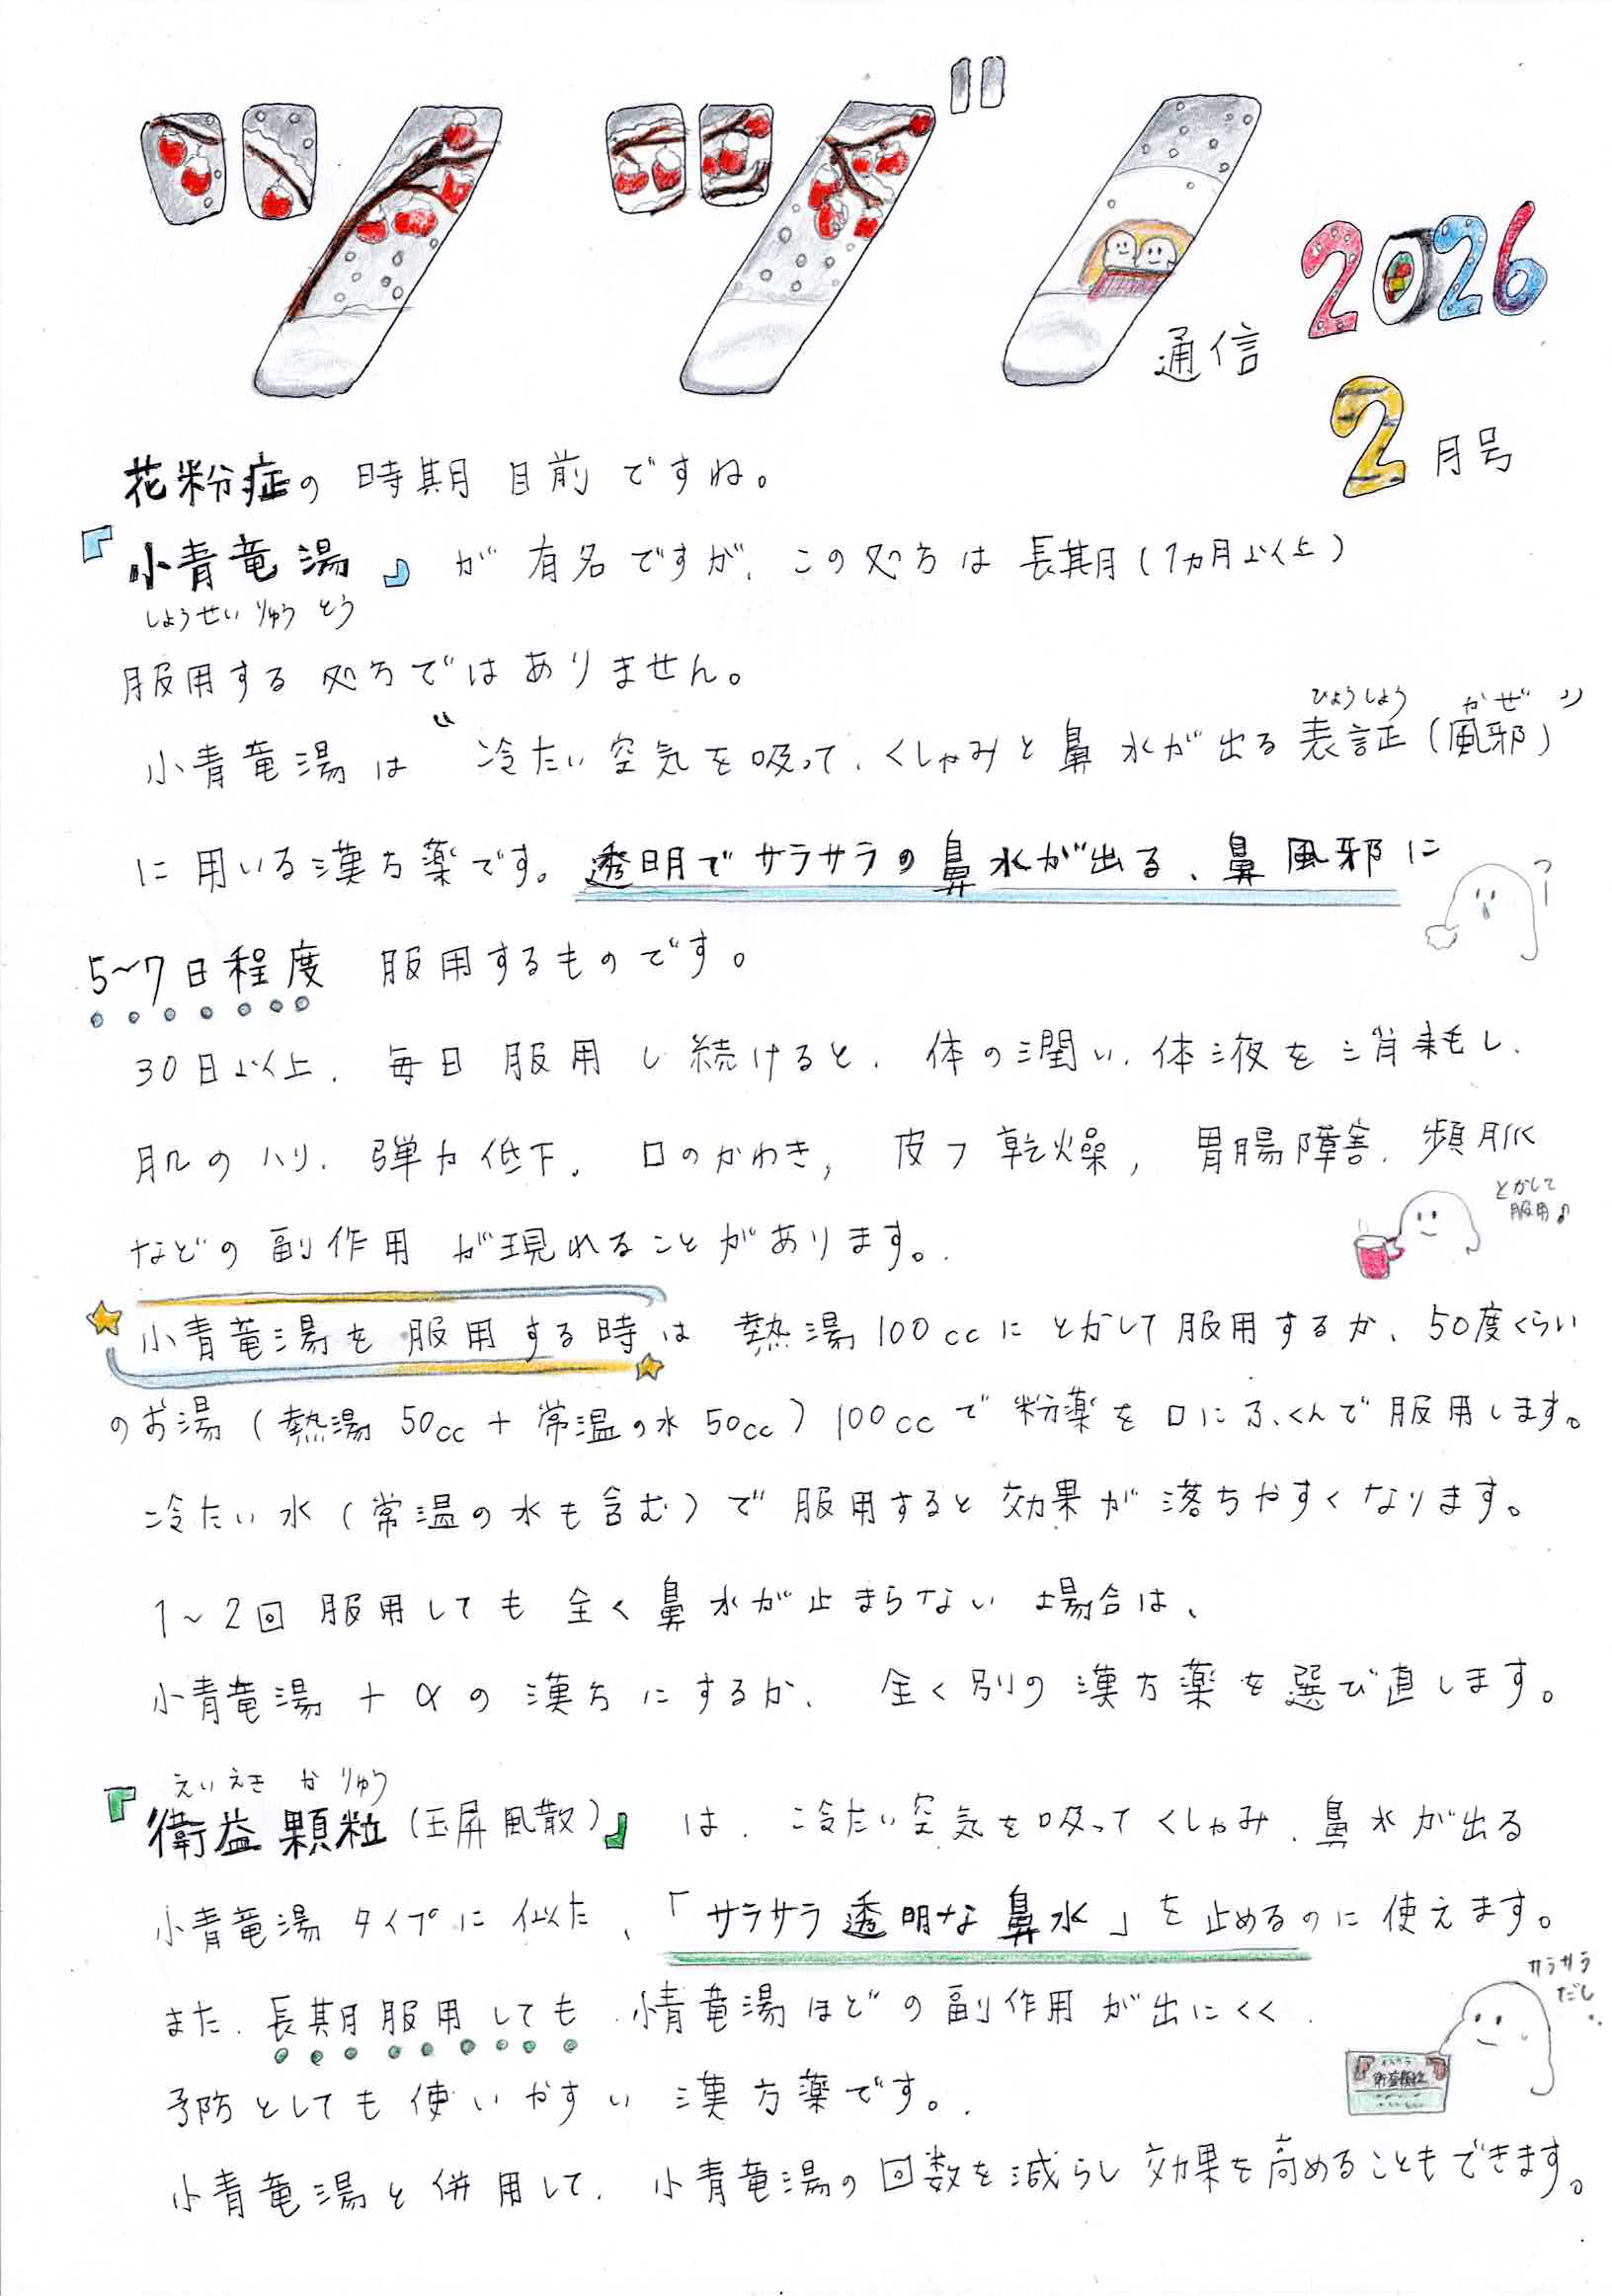 ツヅノ通信 2026
2月号
花粉症の時期目前ですね。
『小青竜湯』が有名ですが、この処方は長期(1カ月以上)
しょうせいりゅうとう
服用する処方ではありません。
ひょうしょう かぜ
小青竜湯は“冷たい空気を吸って、くしゃみと鼻水が出る表証(風邪)”
に用いる漢方薬です。透明でサラサラの鼻水が出る、鼻風邪に
5~7日程度 服用するものです。
30日以上、毎日服用し続けると、体の潤い、体液を消耗し、
肌のハリ、弾力低下、口のかわき, 皮フ乾燥, 胃腸障害、頻脈
などの副作用が現れることがあります。
とかして
服用♪
小青竜湯を服用する時は 熱湯100ccにとかして服用するか、50度くらい
のお湯(熱湯50cc+常温の水50cc)100ccで粉薬を口にふくんで服用します。
冷たい水(常温の水も含む)で服用すると効果が落ちやすくなります。
1~2回服用しても全く鼻水が止まらない場合は、
小青竜湯+αの漢方にするか、全く別の漢方薬を選び直します。
えいえきかりゅう
『衛益顆粒(玉屏風散)』は、冷たい空気を吸ってくしゃみ、鼻水が出る
小青竜湯タイプに似た、「サラサラ透明な鼻水」を止めるのに使えます。
また、長期服用しても、小青竜湯ほどの副作用が出にくく、
サラサラ
だし…
衛益顆粒
予防としても使いやすい漢方薬です。
小青竜湯と併用して、小青竜湯の回数を減らし効果を高めることもできます。